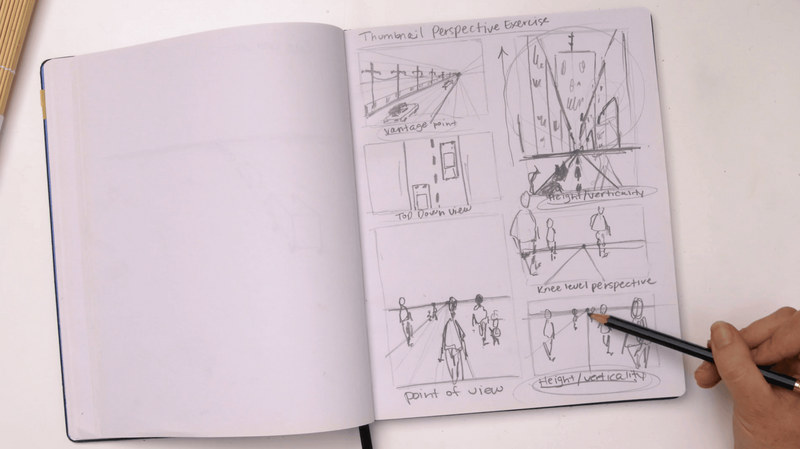 Thumbnail Perspective Exercise
Vantage point
Top Down View
point of view
Height/verticality
Knee level perspective
Height/verticality